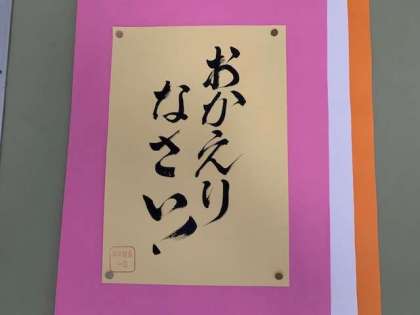 おかえり
なさい!